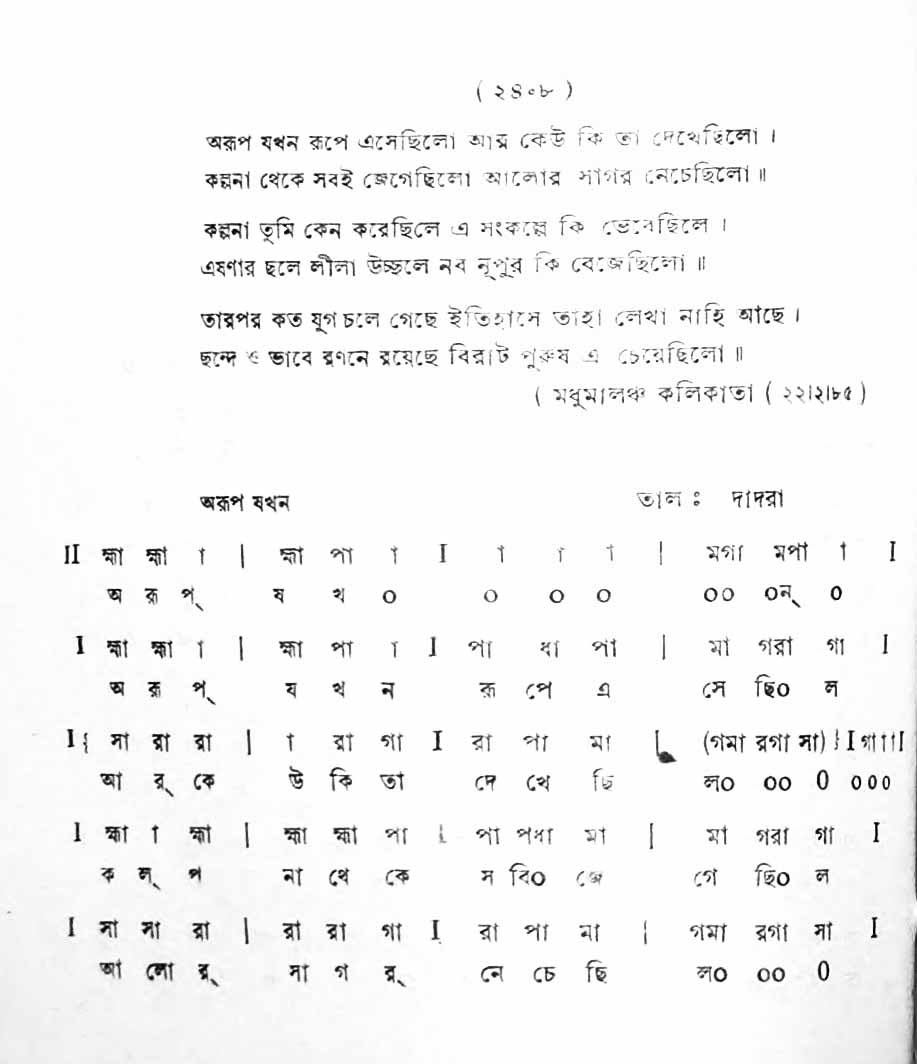 ( ২৪০৮ )
অরূপ যখন রূপে এসেছিলো আর কেউ কি তা দেখেছিলো ।
কল্পনা থেকে সবই জেগেছিলো আলোর সাগর নেচেছিলো ॥
কল্পনা তুমি কেন করেছিলে এ সংকল্পে কি ভেবেছিলে ।
এষণার ছলে লীলা উচ্ছলে নব নূপুর কি বেজেছিলো ॥
তারপর কত যুগ চলে গেছে ইতিহাসে তাহা লেখা নাহি আছে ।
ছন্দে ও ভাবে রণনে রয়েছে বিরাট পুরুষ এ চেয়েছিলো ॥
( মধুমালঞ্চ কলিকাতা ( ২২।২।৮৫ )
অরূপ যখন তাল ঃ দাদরা
II হ্মা হ্মা া | হ্মা পা া I া া া | মগা মপা া I
অ রূ প্ য খ ০ ০ ০ ০ ০০ ০ন্ ০
I হ্মা হ্মা া | হ্মা পা া I পা ধা পা | মা গরা গা I
অ রূ প্ য খ ন রূ পে এ সে ছি০ ল
I { সা রা রা | া রা গা I রা পা মা [ (গমা রগা সা) } I গা া া I
আ র্ কে উ কি তা দে খে ছি ল০ ০০ ০ ০০০
I হ্মা া হ্মা | হ্মা হ্মা পা I পা পধা মা | মা গরা গা I
ক ল্ প না থে কে স বি০ জে গে ছি০ ল
I সা সা রা | রা রা গা I রা পা মা | গমা রগা সা I
আ লো র্ সা গ র্ নে চে ছি ল০ ০০ ০